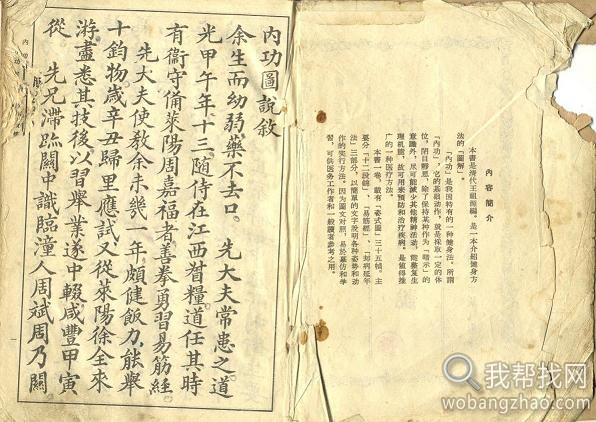 內容簡介
本書是清代王祖源編。是一本介紹健身方
法的「圖解」。
「內功」是我國特有的一种健身法。所謂
「內功」，它的基础动作，就是採取一定的体
位，閉目靜思，除了保持某种作为「暗示」的
意識外，尽可能减少其他精神活动，能整复生
理机能，故可用来預防和治疗疾病。是值得推
广的一种医疗方法。
本書一卷，載有「姿式圖」三十五幀。主
要分「十二段錦」、「易筋經」、「却病延年
法」三部分，以簡單的文字說明各种姿势和动
作的实行方法。因为圖文对照，易於摹仿和学
習，可供医务工作者和一般讀者参考之用。
內功圖說敘
余生而幼弱藥不去口。先大夫常患之道
光甲午年十三隨侍在江西督糧道任其時
有衞守備萊陽周嘉福者善拳勇習易筋經
先大夫使教余未幾一年頗健飯力能舉
十鈞物歲辛丑歸里應試又從萊陽徐全來
游盡悉其技後以習舉業遂中輟咸豐甲寅
從 先兄滯跡關中識臨潼人周斌周乃關
我帮找网
wobangzhao.com